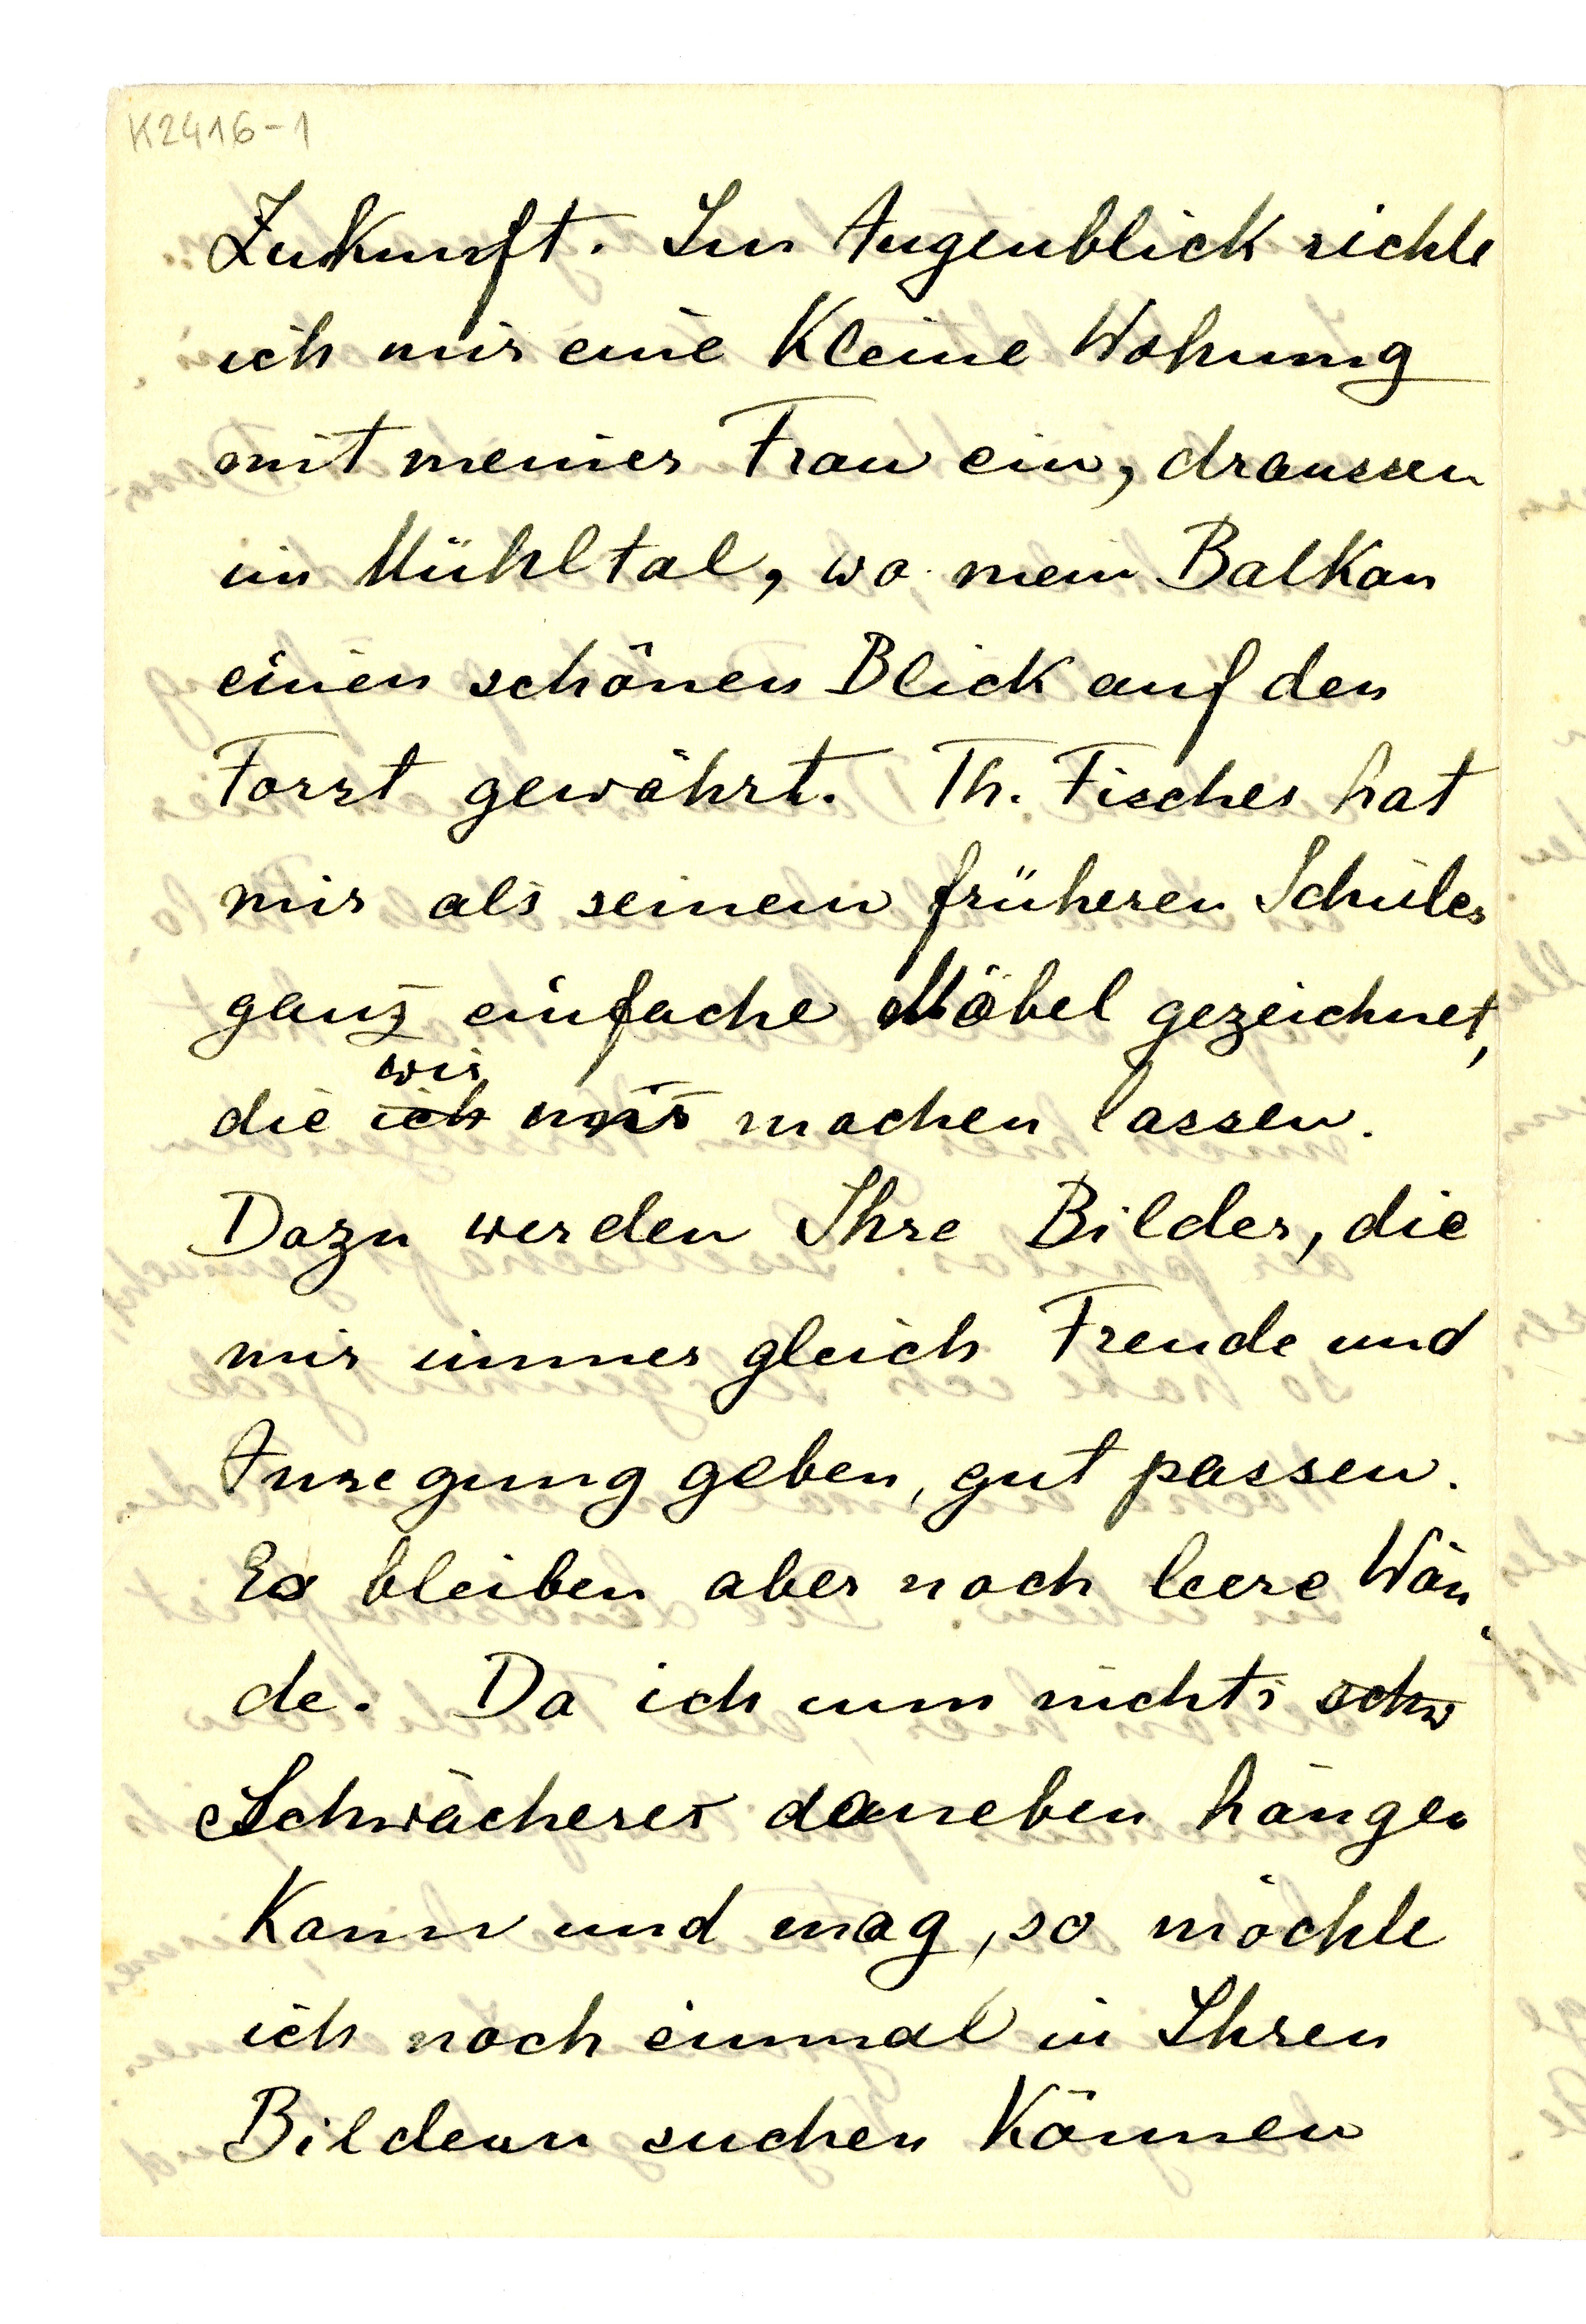 K2416-1
Zukunft. Im Augenblick richte
ich mir eine kleine Wohnung
mit meiner Frau ein, draussen
im Mühltal, wo mein Balkon
einen schönen Blick auf den
Forst gewährt. Th. Fischer hat
mir als seinem früheren Schüler
ganz einfache Möbel gezeichnet,
wir
die ich uns machen lassen.
Dazu werden Ihre Bilder, die
mir immer gleich Freude und
Anregung geben, gut passen.
Es bleiben aber noch leere Wän
de. Da ich nun nichts schw
Schwächeres daneben hängen
kann und mag, so möchte
ich noch einmal in Ihren
Bildern suchen können